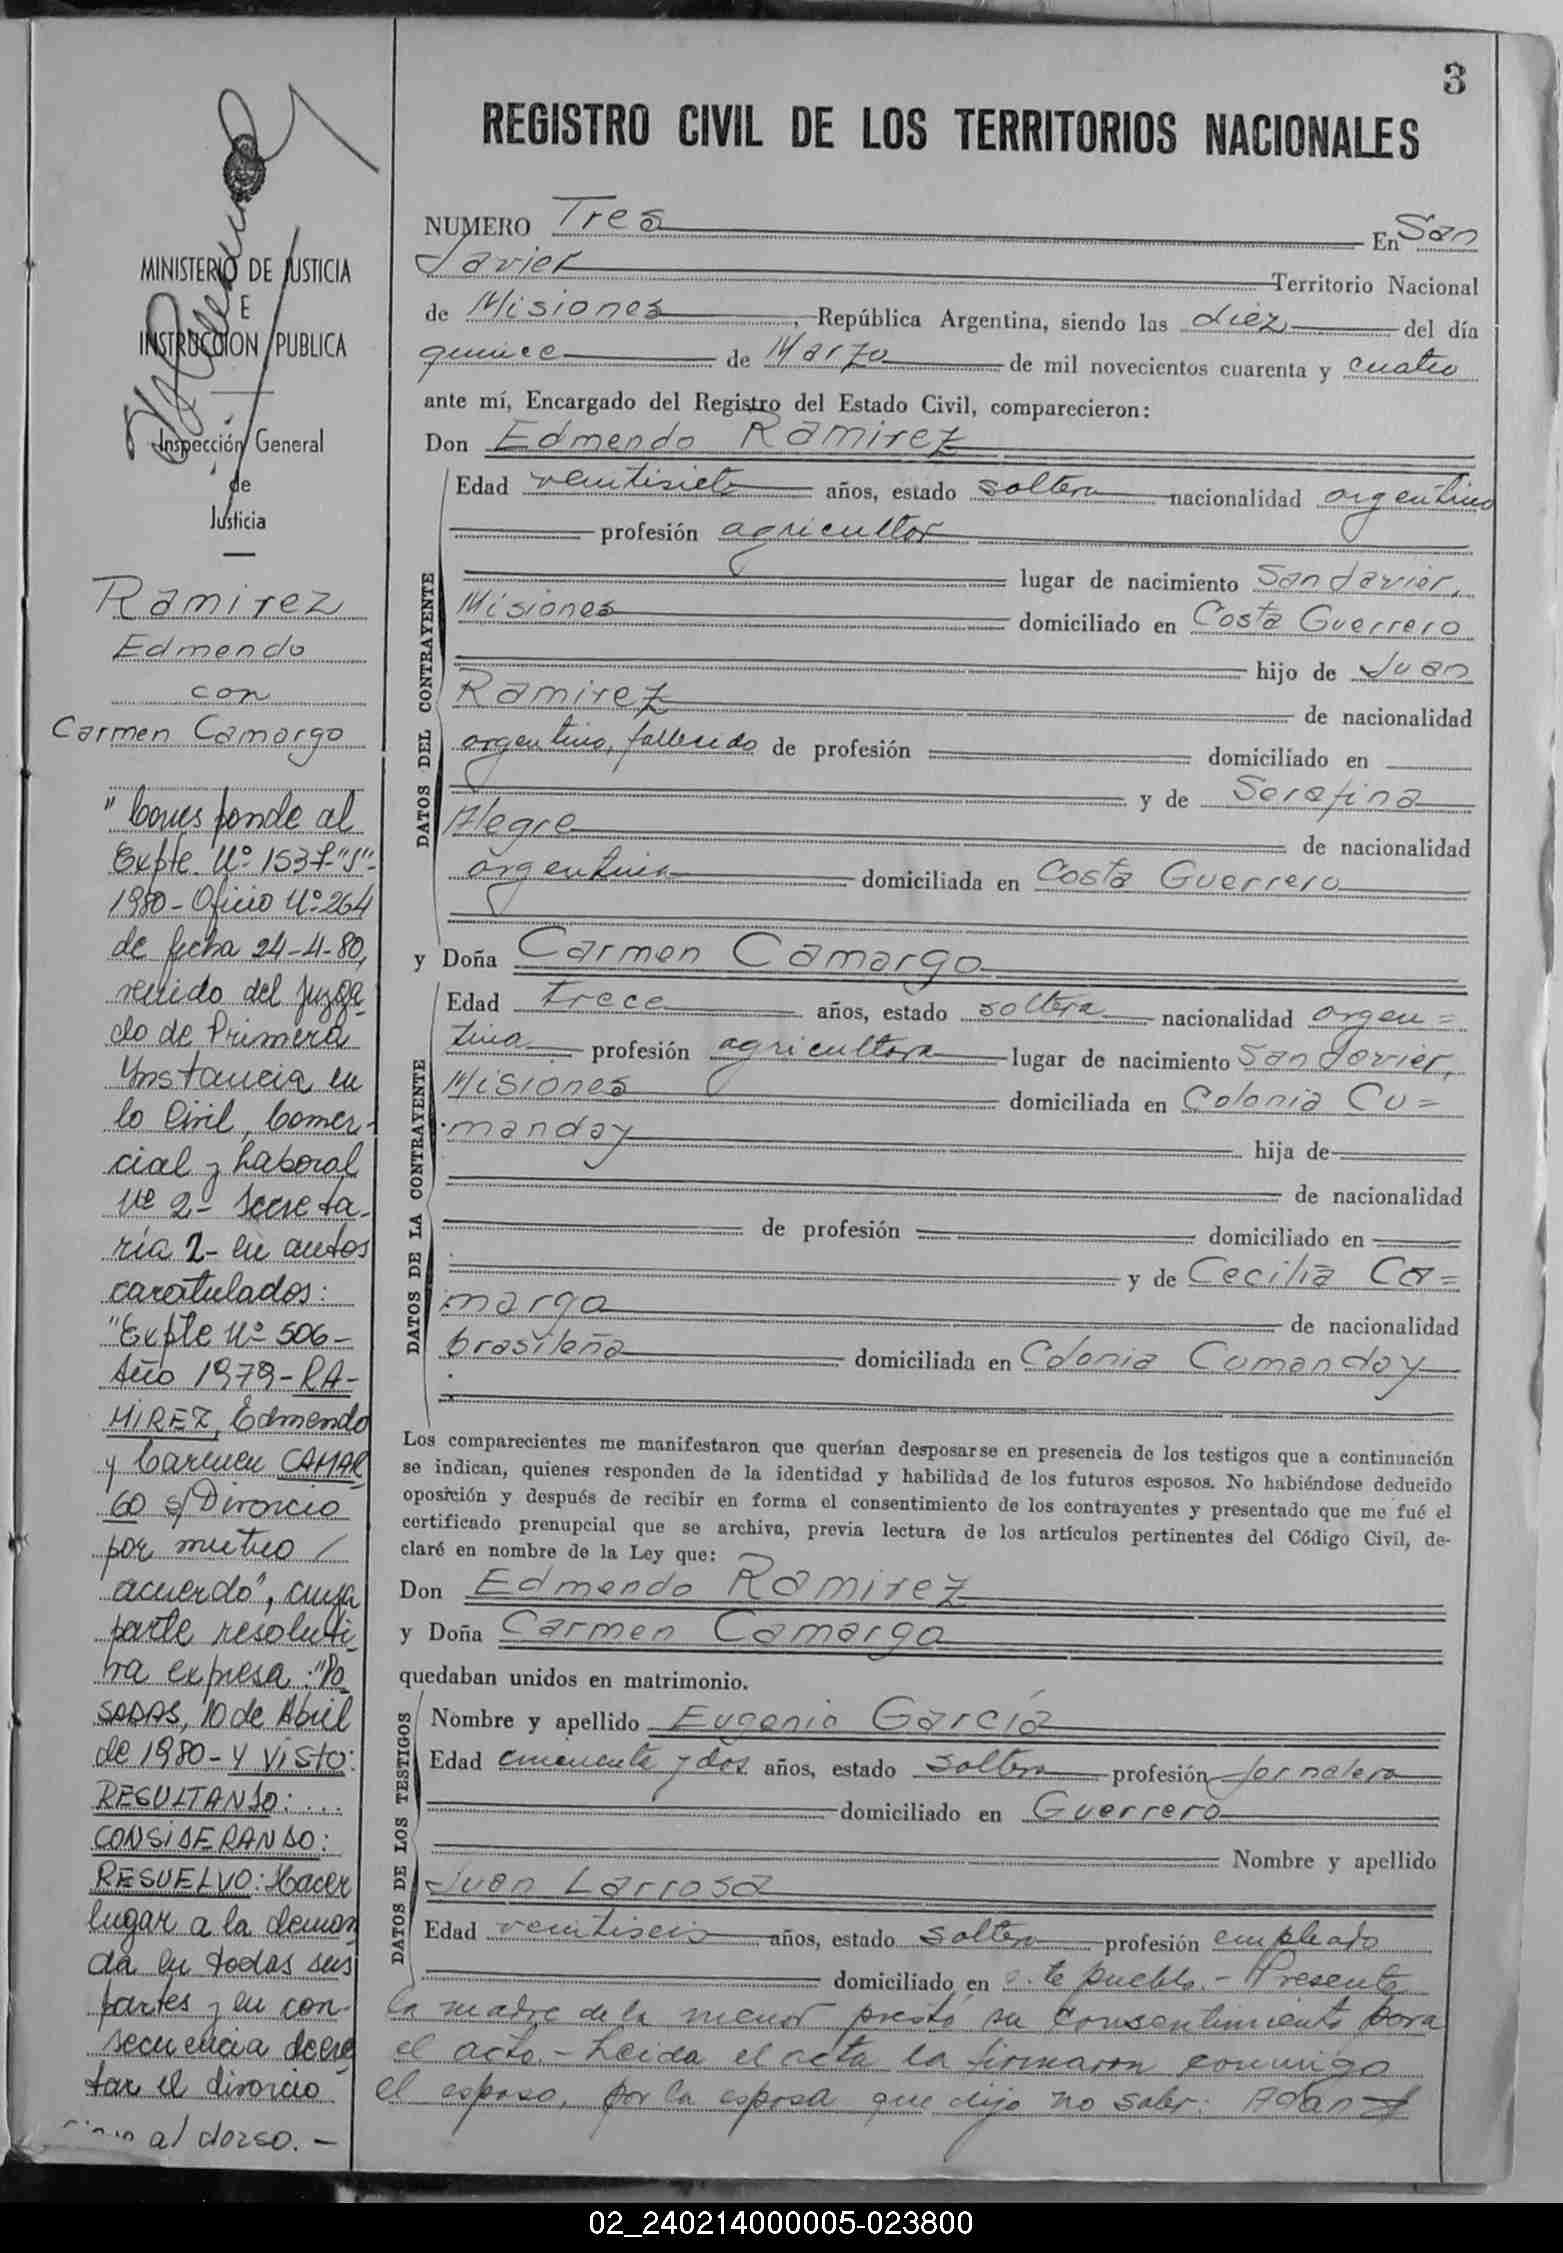 3
REGISTRO CIVIL DE LOS TERRITORIOS NACIONALES
MINISTERIO DE JUSTICIA
E
INSTRUCCION PUBLICA
Inspección General
de
Justicia
Ramirez
Edmendo
con
Carmen Camargo
"Corresponde al
Expte. Nº 1537-"S"-
1980- Oficio Nº 264
de fecha 24-4-80,
venido del Juzga-
do de Primera
Ynstancia en
lo Civil, Comer-
cial y Laboral
Nº 2- Secreta-
ría 2- en autos
caratulados:
"Expte Nº 506-
Año 1979- RA-
MIREZ, Edmendo
y Carmen CAMAR
GO s/Divorcio
por mutuo /
acuerdo", cuya
parte resoluti-
va expresa: "Po-
SADAS, 10 de Abril
de 1980- Y VISTO:
RESULTANDO: ...
CONSIDERANDO:
RESUELVO: Hacer
lugar a la deman
da en todas sus
partes y en con-
secuencia decre
tar el divorcio
al dorso. -
NUMERO Tres En San
Javier Territorio Nacional
de Misiones, República Argentina, siendo las diez del día
quince de Marzo de mil novecientos cuarenta y cuatro
ante mí, Encargado del Registro del Estado Civil, comparecieron:
Don Edmendo Ramirez
DATOS DEL CONTRAYENTE
Edad veintisiete años, estado soltero nacionalidad argentino
profesión agricultor
lugar de nacimiento San Javier,
Misiones domiciliado en Costa Guerrero
hijo de Juan
Ramirez de nacionalidad
argentino, fallecido de profesión domiciliado en
y de Serafina
Alegre de nacionalidad
argentina domiciliada en Costa Guerrero
y Doña Carmen Camargo
DATOS DE LA CONTRAYENTE
Edad trece años, estado soltera nacionalidad argen=
tina profesión agricultora lugar de nacimiento San Javier,
Misiones domiciliada en Colonia Cu=
manday hija de
de nacionalidad
de profesión domiciliado en
y de Cecilia Ca=
margo de nacionalidad
brasileña domiciliada en Colonia Cumanday
Los comparecientes me manifestaron que querían desposarse en presencia de los testigos que a continuación
se indican, quienes responden de la identidad y habilidad de los futuros esposos. No habiéndose deducido
oposición y después de recibir en forma el consentimiento de los contrayentes y presentado que me fué el
certificado prenupcial que se archiva, previa lectura de los artículos pertinentes del Código Civil, de-
claré en nombre de la Ley que:
Don Edmendo Ramirez
y Doña Carmen Camargo
quedaban unidos en matrimonio.
DATOS DE LOS TESTIGOS
Nombre y apellido Eugenio García
Edad cincuenta y dos años, estado soltero profesión jornalero
domiciliado en Guerrero
Nombre y apellido
Juan Larrosa
Edad veintiseis años, estado soltero profesión empleado
domiciliado en este pueblo.- Presente
la madre de la menor prestó su consentimiento para
el acto.- Leida el acta la firmaron conmigo
el esposo, por la esposa que dijo no saber: Adan
02_240214000005-023800